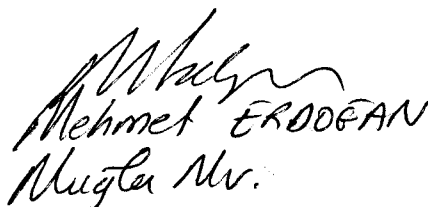 Mehmet ERDOĞAN
Muğla Mv.